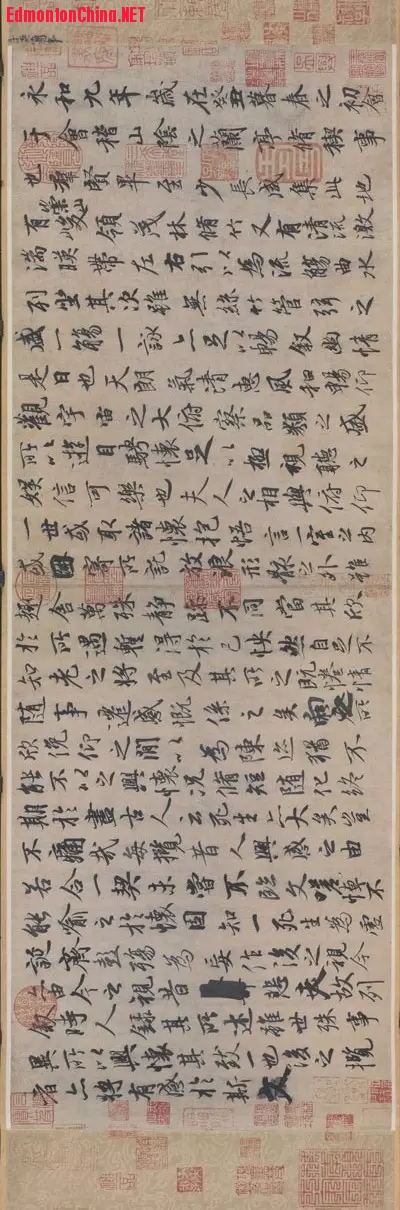 EdmontonChina.NET
永和九年歲在癸丑暮春之初會
于會稽山陰之蘭亭脩稧事
也羣賢畢至少長咸集此地
有崇山峻領茂林脩竹又有清流激
湍暎帶左右引以為流觴曲水
列坐其次雖無絲竹管弦之
盛一觴一詠亦足以暢敘幽情
是日也天朗氣清惠風和暢仰
觀宇宙之大俯察品類之盛
所以遊目騁懷足以極視聽之
娛信可樂也夫人之相與俯仰
一世或取諸懷抱悟言一室之內
或因寄所託放浪形骸之外雖
趣舍萬殊靜躁不同當其欣
於所遇暫得於己怏然自足不
知老之將至及其所之既惓情
隨事遷感慨係之矣向之所
欣俛仰之閒以為陳迹猶不
能不以之興懷況脩短隨化終
期於盡古人云死生亦大矣豈
不痛哉每攬昔人興感之由
若合一契未嘗不臨文嗟悼不
能喻之於懷固知一死生為虛
誕齊彭殤為妄作後之視今
亦由今之視昔悲夫故列
敘時人錄其所述雖世殊事
異所以興懷其致一也後之攬
者亦將有感於斯文